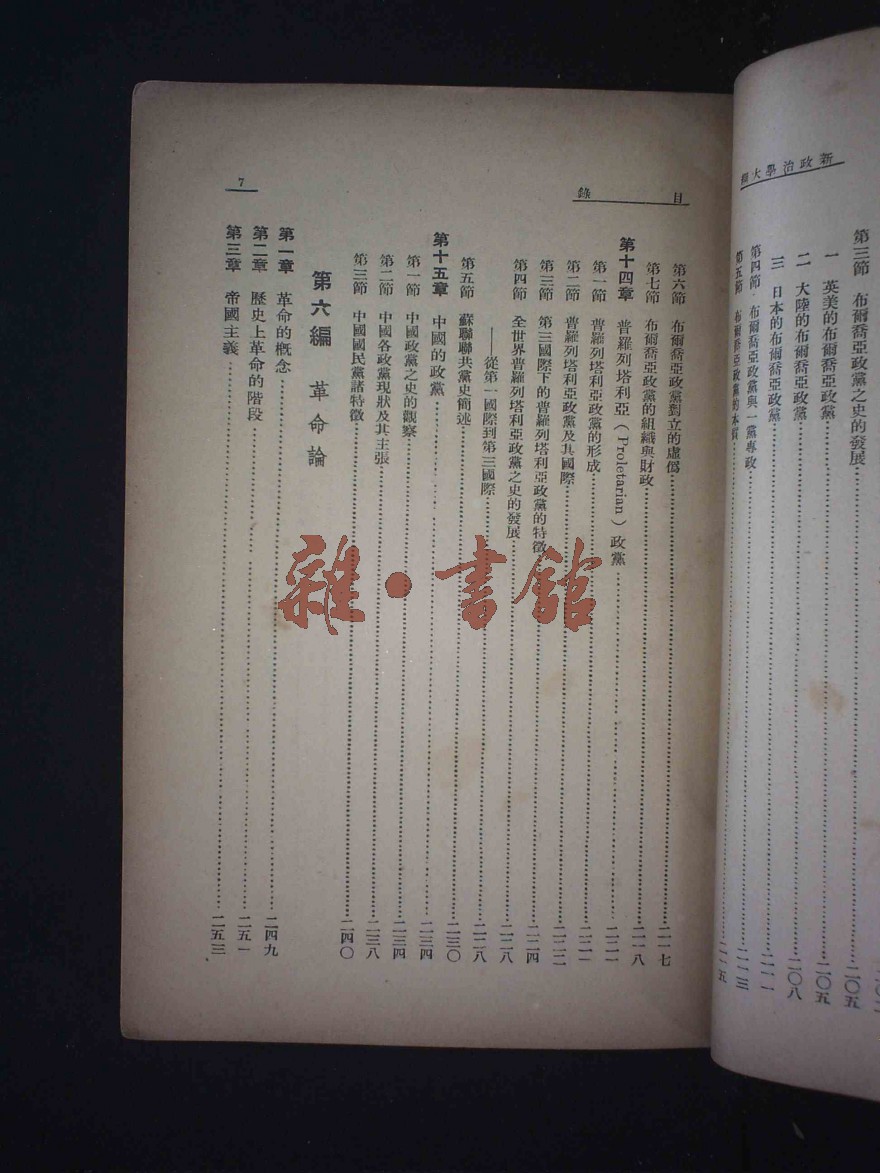 新政治學大綱
第三節 布爾喬亞政黨之史的發展……二〇五
一 英美的布爾喬亞政黨……二〇五
二 大陸的布爾喬亞政黨……二〇八
三 日本的布爾喬亞政黨……二一一
第四節 布爾喬亞政黨與一黨專政……二一三
第五節 布爾喬亞政黨的本質……二一五
目錄
7
第六節 布爾喬亞政黨對立的虛僞……二一七
第七節 布爾喬亞政黨的組織與財政……二一八
第十四章 普羅列塔利亞(Proletarian)政黨……二二一
第一節 普羅列塔利亞政黨的形成……二二一
第二節 普羅列塔利亞政黨及其國際……二二二
第三節 第三國際下的普羅列塔利亞政黨的特徵……二二四
第四節 全世界普羅列塔利亞政黨之史的發展……二二八
——從第一國際到第三國際……二二八
第五節 蘇聯聯共黨史簡述……二三〇
第十五章 中國的政黨……二三四
第一節 中國政黨之史的觀察……二三四
第二節 中國各政黨現狀及其主張……二三八
第三節 中國國民黨諸特徵……二四〇
第六編 革命論
第一章 革命的概念……二四九
第二章 歷史上革命的階段……二五一
第三章 帝國主義……二五三
雜·書館